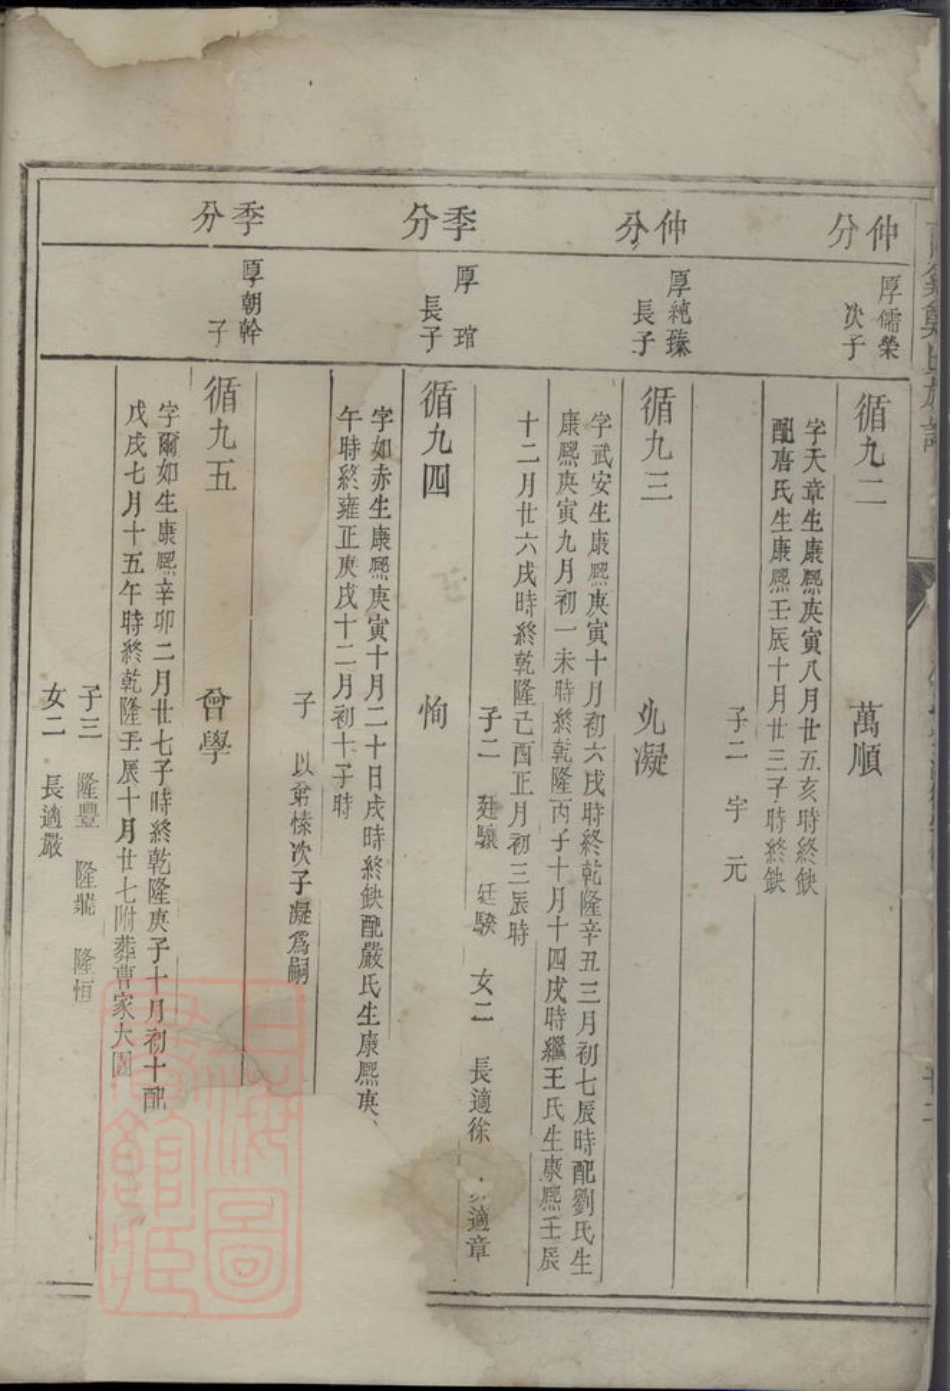 仲分
厚儒榮
次子
循九二
萬順
字天章生康熙庚寅八月廿五亥時終缺
配唐氏生康熙壬辰十月廿三子時終缺
子二 宇 元
仲分
厚純臻
長子
循九三
九凝
字武安生康熙庚寅十月初六戌時終乾隆辛丑三月初七辰時配劉氏生
康熙庚寅九月初一未時終乾隆丙子十月十四戌時繼王氏生康熙壬辰
十二月廿六戌時終乾隆己酉正月初三辰時
子二 廷驤 廷騻 女二 長適徐 適章
季分
厚琯
長子
循九四
恂
字如赤生康熙庚寅十月二十日戌時終缺配嚴氏生康熙庚
午時終雍正庚戌十二月初十子時
子 以弟愫次子凝爲嗣
季分
厚朝幹
子
循九五
曾學
字爾如生康熙辛卯二月廿七子時終乾隆庚子十月初十配
戊戌七月十五午時終乾隆壬辰十月廿七附葬曹家大園
子三 隆豐 隆 隆恒
女二 長適嚴
上海圖書館藏